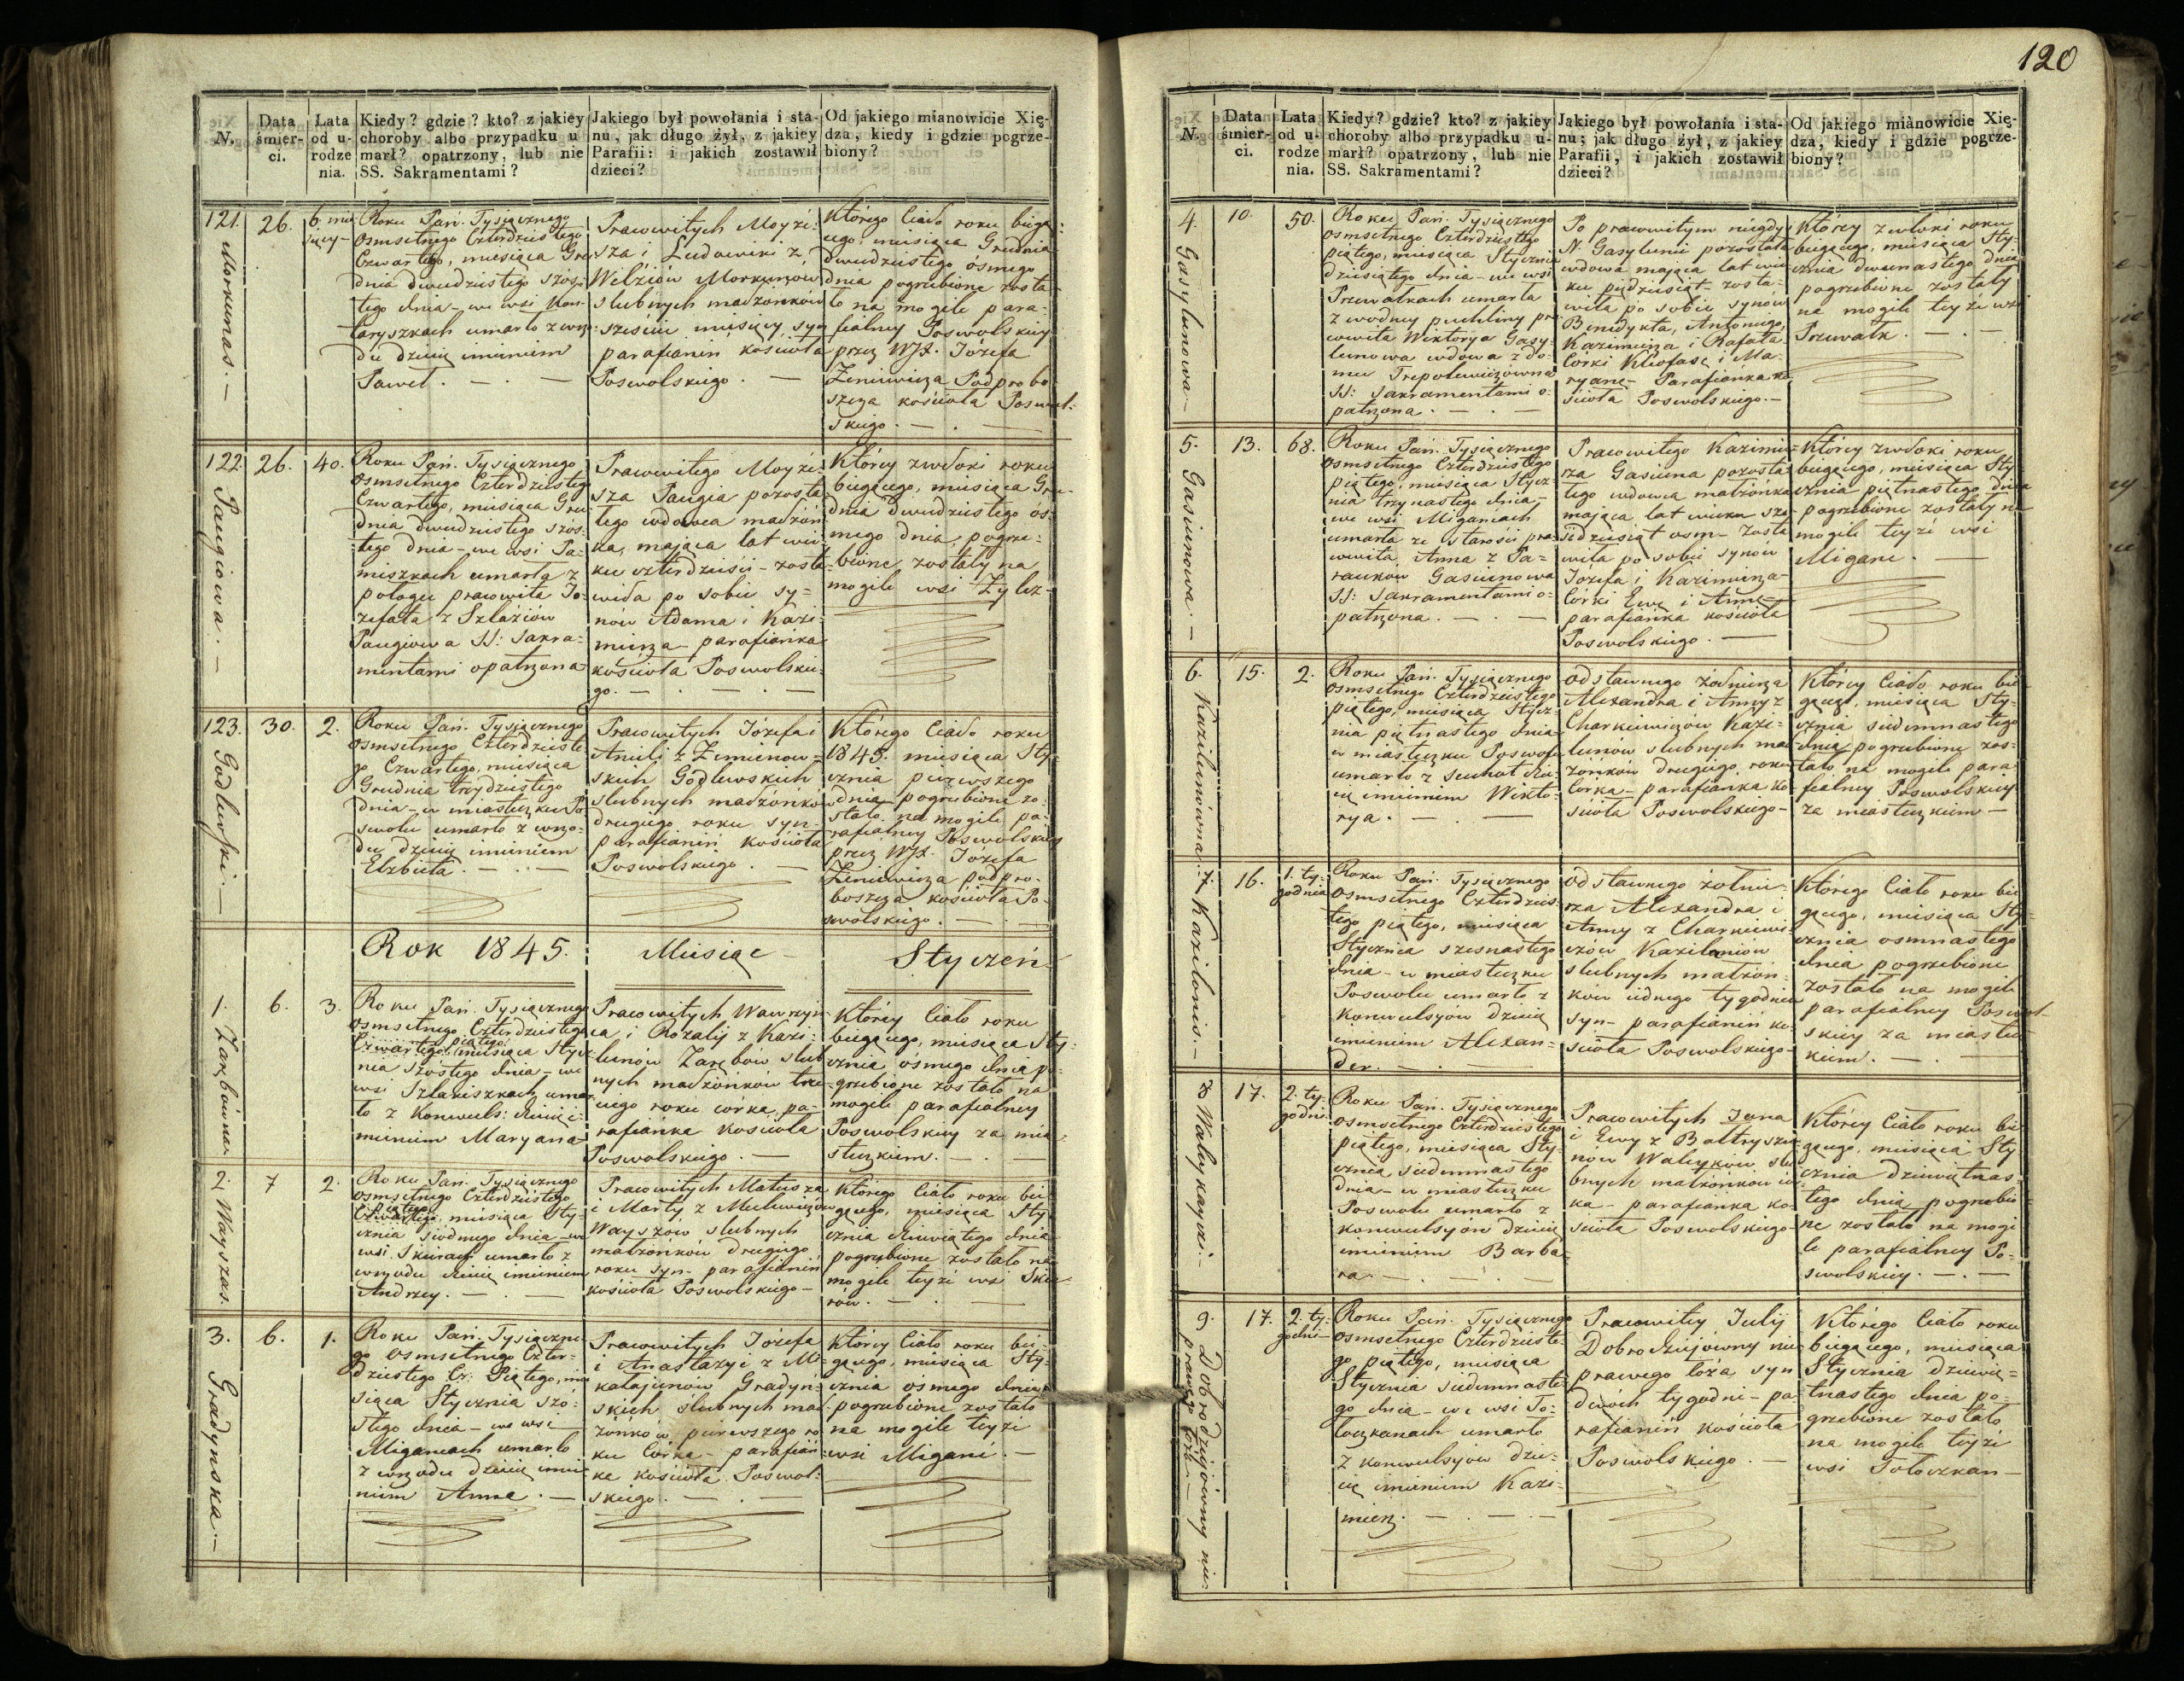 120
N.
Data śmier-
ci.
Lata
od u-
rodze
nia.
Kiedy? gdzie? kto? z jakiey
choroby albo przypadku u-
marł? opatrzony, lub nie
SS. Sakramentami?
Jakiego był powołania i sta-
nu, jak długo żył, z jakiey
Parafii: i jakich zostawił
dzieci?
Od jakiego mianowicie Xię-
dza, kiedy i gdzie pogrze-
biony?
121.
Morkunas. —
26.
6. mie
sięcy —
Roku Pań. Tysiącznego
Osmsetnego Czterdziestego
Czwartego, miesiąca Gru
dnia dwudziestego szós-
tego dnia — we wsi
laryszkach umarło z wrzo-
du dziecię imieniem
Paweł. — . —
Pracowitych Moyże-
sza i Ludowiki z
Welżiów Morkunow
slubnych małżonków
sześciu miesięcy syn
parafianin kościoła
Poswolskiego. —
Którego Ciało roku bieżą-
cego, miesiąca Grudnia
dwudziestego ósmego
dnia pogrzebione zosta-
ło na mogile para-
fialney Poswolskiey
przez WJX. Józefa
Zeniewicza Podprobo-
szcza kościoła Poswol-
skiego. — . —
122.
Paugiowa. —
26.
40.
Roku Pań. Tysiącznego
Osmsetnego Czterdziestego
Czwartego, miesiąca Gru
dnia dwudziestego szós-
tego dnia — we wsi Pa-
miszkach umarła z
połogu pracowita Jo-
zefata z Szlażiów
Paugiowa SS: Sakra-
mentami opatrzona
Pracowitego Moyże-
sza Paugia pozosta-
łego wdowca małżon
ka, maiąca lat wie-
ku czterdzieści — zosta-
wiła po sobie sy-
nów Adama i Kazi-
mierza — parafianka
kościoła Poswolskie-
go. — . — . —
Którey zwłoki roku
bieżącego, miesiąca Gru-
dnia Dwudziestego ós-
mego dnia, pogrze-
bione zostały na
mogile wsi
123.
Godlewski. —
30.
2.
Roku Pań. Tysiącznego
Osmsetnego Czterdzieste-
go Czwartego, miesiąca
Grudnia trzydziestego
dnia — w miasteczku Po-
swolu umarło z wrzo-
du dziecię imieniem
Elzbieta. — . —
Pracowitych Józefa i
Anieli z Zemienow-
skich Godlewskich
slubnych małżonków
drugiego roku syn —
parafianin kościoła
Poswolskiego. —
Którego Ciało roku
1845. miesiąca Sty-
cznia pierwszego
dnia — pogrzebione zo-
stało na mogile pa-
rafialney Poswolskiey
przez WJX. Józefa
Zeniewicza podpro-
boszcza kościoła Po-
swolskiego. — . —
Rok 1845.
Miesiąc —
Styczeń —
1.
Zarębówna
6.
3.
Roku Pań. Tysiącznego
Osmsetnego Czterdziestego
piątego
Czwartego, miesiąca Stycz
nia szóstego dnia — we
wsi Szlaniszkach umar
ło z Konwuls: dziecię i-
mieniem Maryana
Pracowitych Wawrzyń
ca i Rozalij z Kazi-
lunow Zarębów slub
nych małżonków trze-
ciego roku córka, pa-
rafianka Kościoła
Poswolskiego. —
Którey Ciało roku
bieżącego, miesiąca Sty-
cznia ósmego dnia po-
grzebione zostało na
mogile parafialney
Poswolskiey za mia-
steczkiem. — . —
2.
Wayszas.
7
2.
Roku Pań. Tysiącznego
Osmsetnego Czterdziestego
piątego
Czwartego, miesiąca Sty-
cznia siódmego dnia — we
wsi Skurach umarło z
wrzodu dziecię imieniem
Andrzey. — . —
Pracowitych Mateusza
i Marty z Mulewiczow
Wayszów slubnych
małżonkow drugiego
roku syn — parafianin
kościoła Poswolskiego —
Którego Ciało roku bie-
gącego, miesiąca Sty-
cznia dziewiątego dnia
pogrzebione zostało na
mogile teyże wsi Sku-
row. — . —
3.
Gradynska. —
6.
1.
Roku Pań. Tysiączne-
go Osmsetnego Czter-
dziestego Cz. Piątego, mie
siąca Stycznia szó-
stego dnia — we wsi
Miganiach umarło
z wrzodu dziecię imie
niem Anna. —
Pracowitych Józefa
i Anastazyi z Mi-
kałajunów Gradyn-
skich slubnych mał-
żonków pierwszego ro-
ku Córka — parafian-
ka kościoła Poswol-
skiego. — . —
Którey Ciało roku bie-
gącego, miesiąca Sty-
cznia osmego dnia
pogrzebione zostało
na mogile teyże
wsi Migani. —
N.
Data
śmier-
ci.
Lata
od u-
rodze
nia.
Kiedy? gdzie? kto? z jakiey
choroby albo przypadku u-
marł? opatrzony, lub nie
SS. Sakramentami?
Jakiego był powołania i sta-
nu; jak długo żył, z jakiey
Parafii, i jakich zostawił
dzieci?
Od jakiego mianowicie Xię-
dza, kiedy i gdzie pogrze-
biony?
4.
Gasylunowa —
10.
50.
Roku Pań. Tysiącznego
Osmsetnego Czterdziestego
piątego, miesiąca Stycznia
dziesiątego dnia — we wsi
Przewałkach umarła
z wodney puchliny pra
cowita Wiktorya Gasy-
lunowa wdowa z do-
mu Trepolewiczowna
SS: Sakramentami o-
patrzona. — . —
Po pracowitym niegdy
N. Gasylunie pozostała
wdowa maiąca lat wie
ku pędziesiąt — zosta-
wiła po sobie synow
Benedykta, Antoniego,
Kazimierza i Rafała
Córki Kleofasę i Ma-
ryanę — Parafianka ko
ścioła Poswolskiego. —
Którey zwłoki roku
biegącego, miesiąca Sty-
cznia dwunastego dnia
pogrzebione zostały
na mogile teyże wsi
Przewałk. — . —
5.
Gasiunowa. —
13.
68.
Roku Pań. Tysiącznego
Osmsetnego Czterdziestego
piątego, miesiąca Stycz-
nia trzynastego dnia —
we wsi Miganiach
umarła ze starości pra-
cowita Anna z Pa-
raukow Gasiunowa
SS: Sakramentami o-
patrzona. — . —
Pracowitego Kazimie-
rza Gasiuna pozosta-
łego wdowca małżonka
mająca lat wieku sze-
śćdziesiąt osm — zosta
wiła po sobie synow
Józefa i Kazimierza —
Córki Ewę i Annę —
parafianka kościoła
Poswolskiego. —
Którey zwłoki roku
biegącego, miesiąca Sty-
cznia piętnastego dnia
pogrzebione zostały na
mogile teyże wsi
Migani. —
6.
Kazilunówna. —
15.
2.
Roku Pań. Tysiącznego
Osmsetnego Czterdziestego
piątego, miesiąca Stycz-
nia piętnastego dnia
w miasteczku Poswolu
umarło z Suchot dzie-
cię imieniem Wikto-
rya. — . —
Odstawnego żołnierza
Alexandra i Anny z
Charkiewiczów Kazi-
lunów slubnych mał
żonków drugiego roku
Córka — parafianka Ko
ścioła Poswolskiego —
Którey Ciało roku bie
gącego, miesiąca Sty-
cznia siedmnastego
dnia pogrzebione zos-
tało na mogile para-
fialney Poswolskiey
za miasteczkiem —
7.
Kazilonis. —
16.
1. ty-
godnia
Roku Pań. Tysiącznego
Osmsetnego Czterdzies-
tego piątego, miesiąca
Stycznia szesnastego
dnia — w miasteczku
Poswolu umarło z
Konwulsyów dziecię
imieniem Alexan-
der. — . —
Odstawnego żołnie-
rza Alexandra i
Anny z Charkiewi-
czów Kazilonów
slubnych małżon-
ków iednego tygodnia
syn — parafianin ko-
ścioła Poswolskiego —
Którego Ciało roku bie
gącego, miesiąca Sty-
cznia osmnastego
dnia pogrzebione
zostało na mogile
parafialney Poswol-
skiey za miastecz
kiem. — . —
8
Waleykayci. —
17.
2. ty-
godni
Roku Pań. Tysiącznego
Osmsetnego Czterdziestego
piątego, miesiąca Sty-
cznia siedmnastego
dnia — w miasteczku
Poswolu umarło z
konwulsyów dziecię
imieniem Barba-
ra. — . —
Pracowitych Jana
i Ewy z Bałtrysze-
now Waleykow slu
bnych małżonkow cór
ka — parafianka ko-
ścioła Poswolskiego —
Którey Ciało roku bie
gącego, miesiąca Sty
cznia dziewiętnas-
tego dnia pogrzebio
ne zostało na mogi
le parafialney Po-
swolskiey. — . —
9.
Dobrodziejówny nie-
prawego łoża —
17.
2. ty-
godni —
Roku Pań. Tysiącznego
Osmsetnego Czterdzieste-
go piątego, miesiąca
Stycznia siedmnaste-
go dnia — we wsi To-
łoczkanach umarło
z konwulsyów dzie-
cię imieniem Kazi-
mierz. — . —
Pracowitey Julij
Dobrodziejówny nie
prawego łoża syn
dwóch tygodni — pa-
rafianin kościoła
Poswolskiego. —
Którego Ciało roku
biegącego, miesiąca
Stycznia dziewię-
tnastego dnia po-
grzebione zostało
na mogile teyże
wsi Tołoczkan —